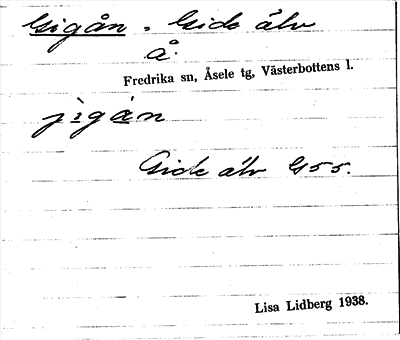 Gigån = Gide älv
Å.
Fredrika sn, Åsele tg, Västerbottens l.
jigån
Gide älv G55.
Lisa Lidberg 1938.